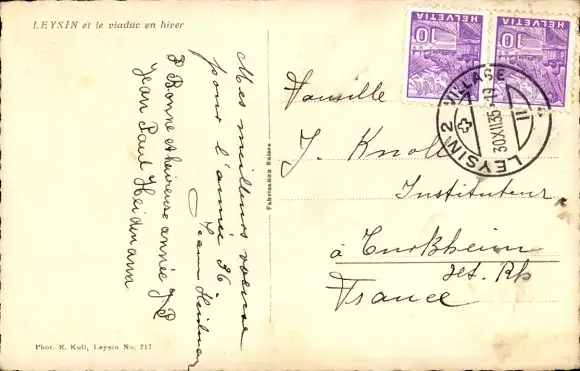 LEYSIN et le viaduc en hiver
Mes meilleurs voeux
pour l'année 36
Jean
P Bonne et heureuse année J P
Jean Paul Heidmann
Phot. E. Kull, Leysin No. 217
Fabrication Suisse
HELVETIA
10
HELVETIA
10
LEYSIN 2 VILLAGE
30.XII.35
11
Famille
J. Knoll
Instituteur
à Turkheim
Ht. Rh
France